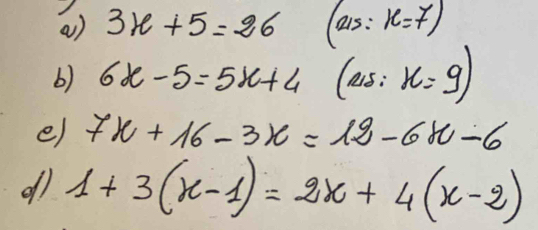 a) 3x + 5 = 26 (as: x = 7)
b) 6x - 5 = 5x + 4 (as: x = 9)
e) 7x + 16 - 3x = 12 - 6x - 6
d) 1 + 3(x - 1) = 2x + 4(x - 2)